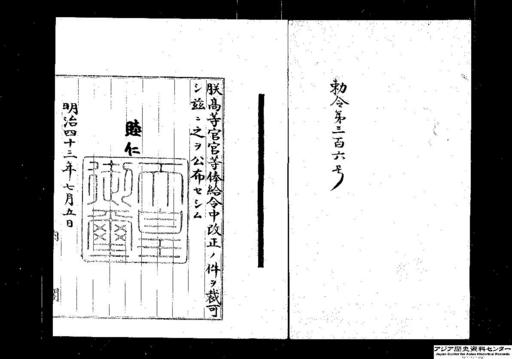 勅令第三百六号
朕高等官官等俸給令中改正ノ件ヲ裁可
シ茲ニ之ヲ公布セシム
睦仁
天皇
御璽
明治四十三年七月五日
内閣
アジア歴史資料センター
Japan Center for Asian Historical Records